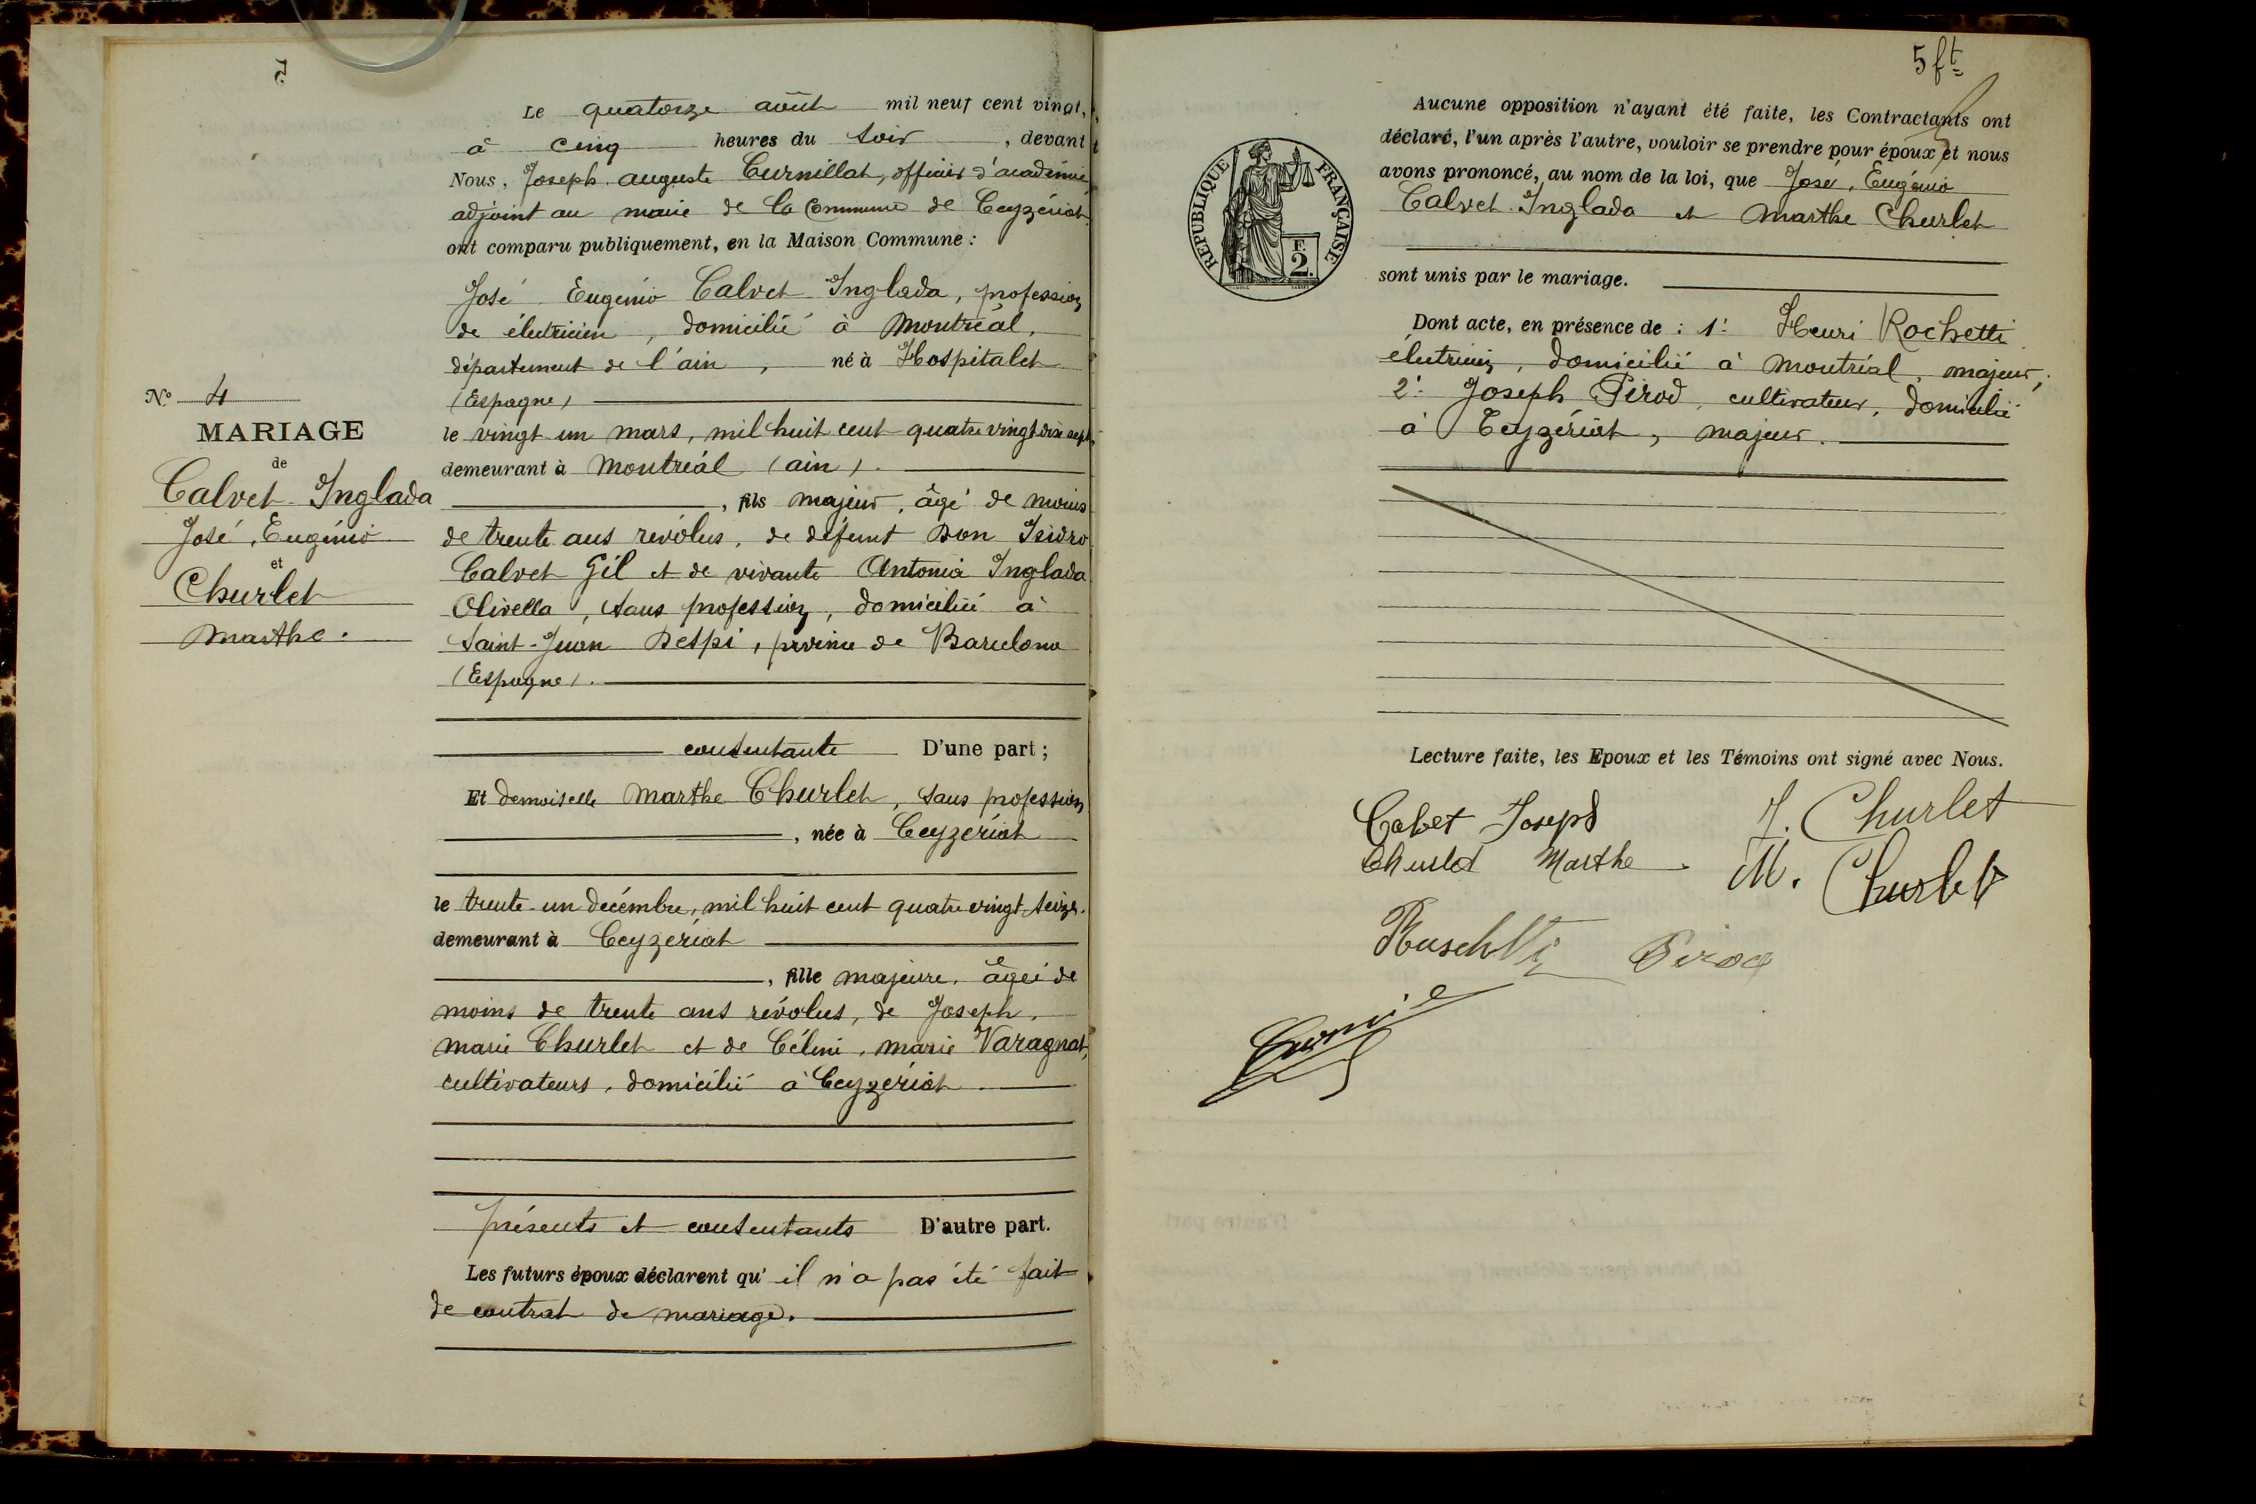 Le quatorze août mil neuf cent vingt,
à cinq heures du soir, devant
Nous, Joseph auguste Curnillat, officier d'académie
adjoint au maire de la Commune de Ceyzériat
ont comparu publiquement, en la Maison Commune :
José Eugénio Calvet Inglada, profession
de électricien, domicilié à Montréal,
département de l'ain, né à Hospitalet
(Espagne)
le vingt un mars, mil huit cent quatre vingt dix sept,
demeurant à Montréal (ain).
, fils majeur, âgé de moins
de trente ans révolus, de défunt Don Isidro
Calvet Gil et de vivante Antonia Inglada
Olivella, sans profession, domicilié à
Saint-Juan Despi, province de Barcelona
(Espagne).
consentante D'une part ;
Et demoiselle Marthe Churlet, sans profession
, née à Ceyzériat
le trente-un décembre, mil huit cent quatre vingt seize.
demeurant à Ceyzériat
, fille majeure, âgée de
moins de trente ans révolus, de Joseph,
marie Churlet et de Céline, marie Varagnat,
cultivateurs, domicilié à Ceyzériat.
présents et consentants D'autre part.
Les futurs époux déclarent qu'il n'a pas été fait
de contrat de mariage.
No 4
MARIAGE
de
Calvet-Inglada
José, Eugénio
et
Churlet
Marthe.
5 ft
Aucune opposition n'ayant été faite, les Contractants ont
déclaré, l'un après l'autre, vouloir se prendre pour époux et nous
avons prononcé, au nom de la loi, que José, Eugénio
Calvet Inglada et Marthe Churlet
sont unis par le mariage.
REPUBLIQUE FRANÇAISE
F.
2.
Dont acte, en présence de : 1º Henri Rochetti
électricien, domicilié à Montréal, majeur,
2º Joseph Pirod, cultivateur, domicilié
à Ceyzériat, majeur.
Lecture faite, les Epoux et les Témoins ont signé avec Nous.
Calvet Joseph
J. Churlet
Churlet Marthe
M. Churlet
Pirod